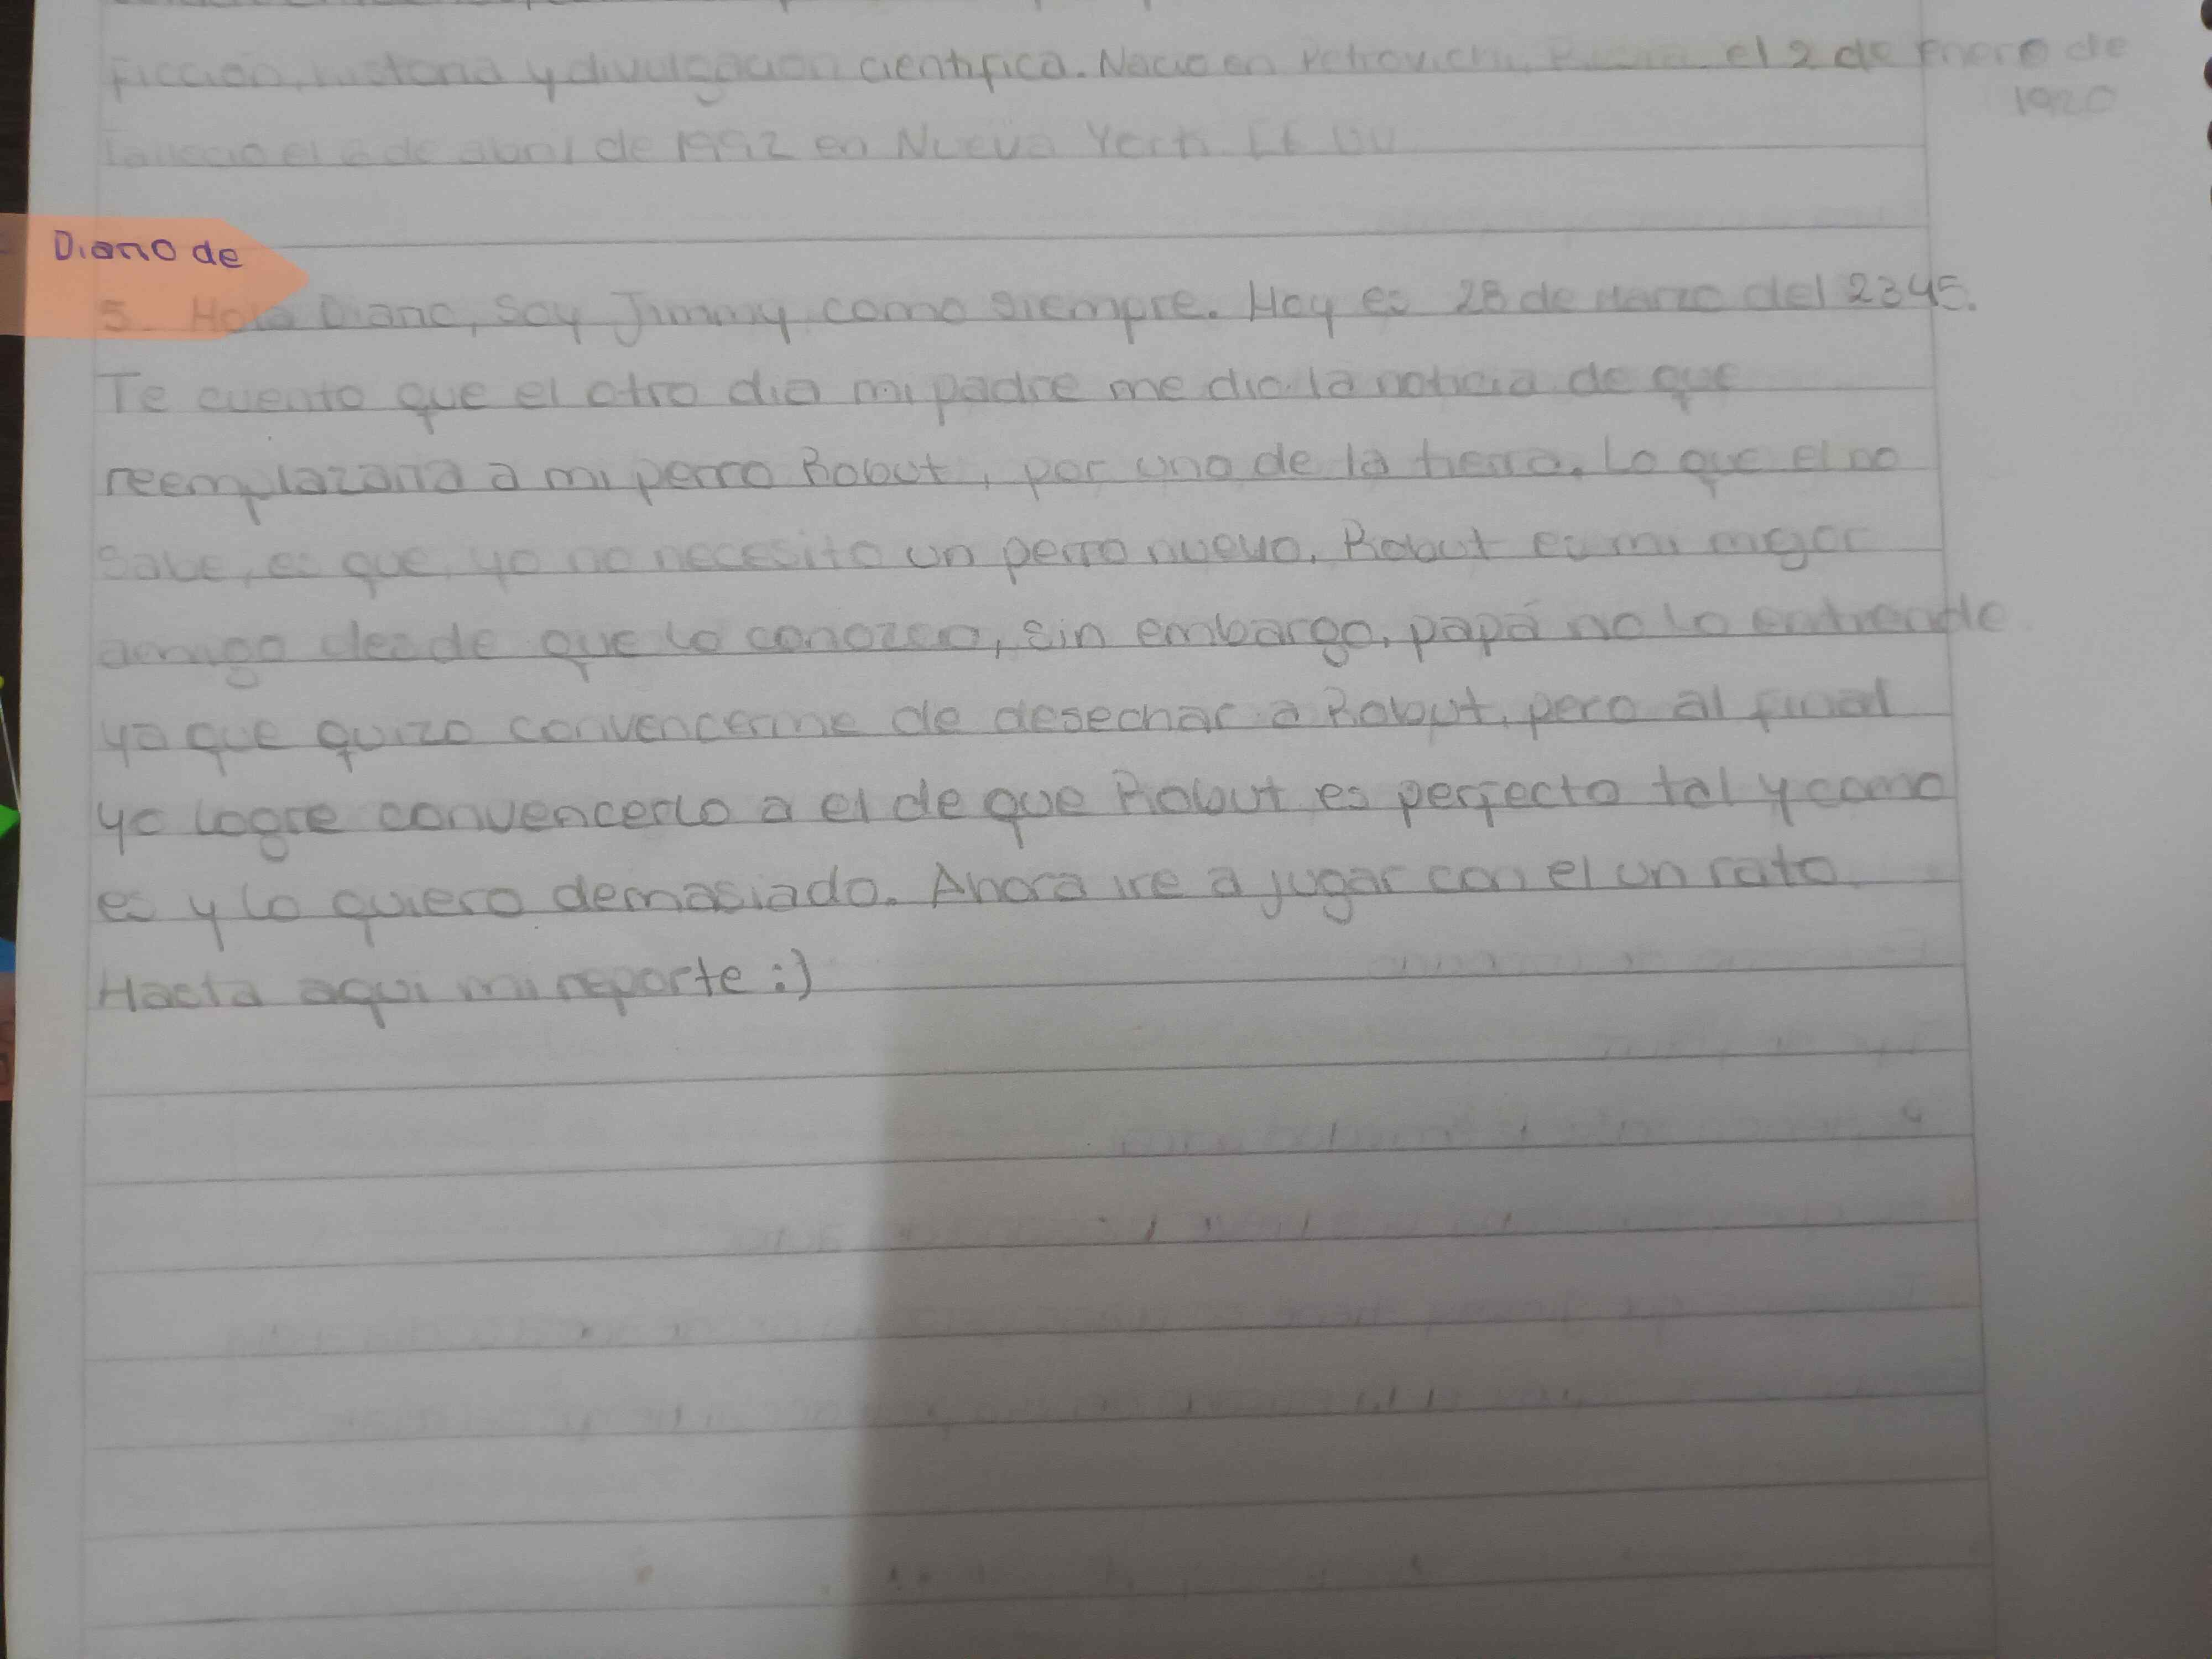 ficcion, historia y divulgación cientifica. Nacio en Petrovichi, Rusia el 2 de Enero de
1920
fallecio el 6 de abril de 1992 en Nueva York EE UU
Diario de
5. Hola Diario, Soy Jimmy como siempre. Hoy es 28 de Marzo del 2345.
Te cuento que el otro dia mi padre me dio la noticia de que
reemplazaria a mi perro Robut, por uno de la tierra. Lo que el no
sabe, es que yo no necesito un perro nuevo. Robut es mi mejor
amigo desde que lo conozco, sin embargo, papá no lo entiende
ya que quizo convencerme de desechar a Robut, pero al final
yo logre convencerlo a el de que Robut es perfecto tal y como
es y lo quiero demasiado. Ahora ire a jugar con el un rato
Hasta aqui mi reporte :)